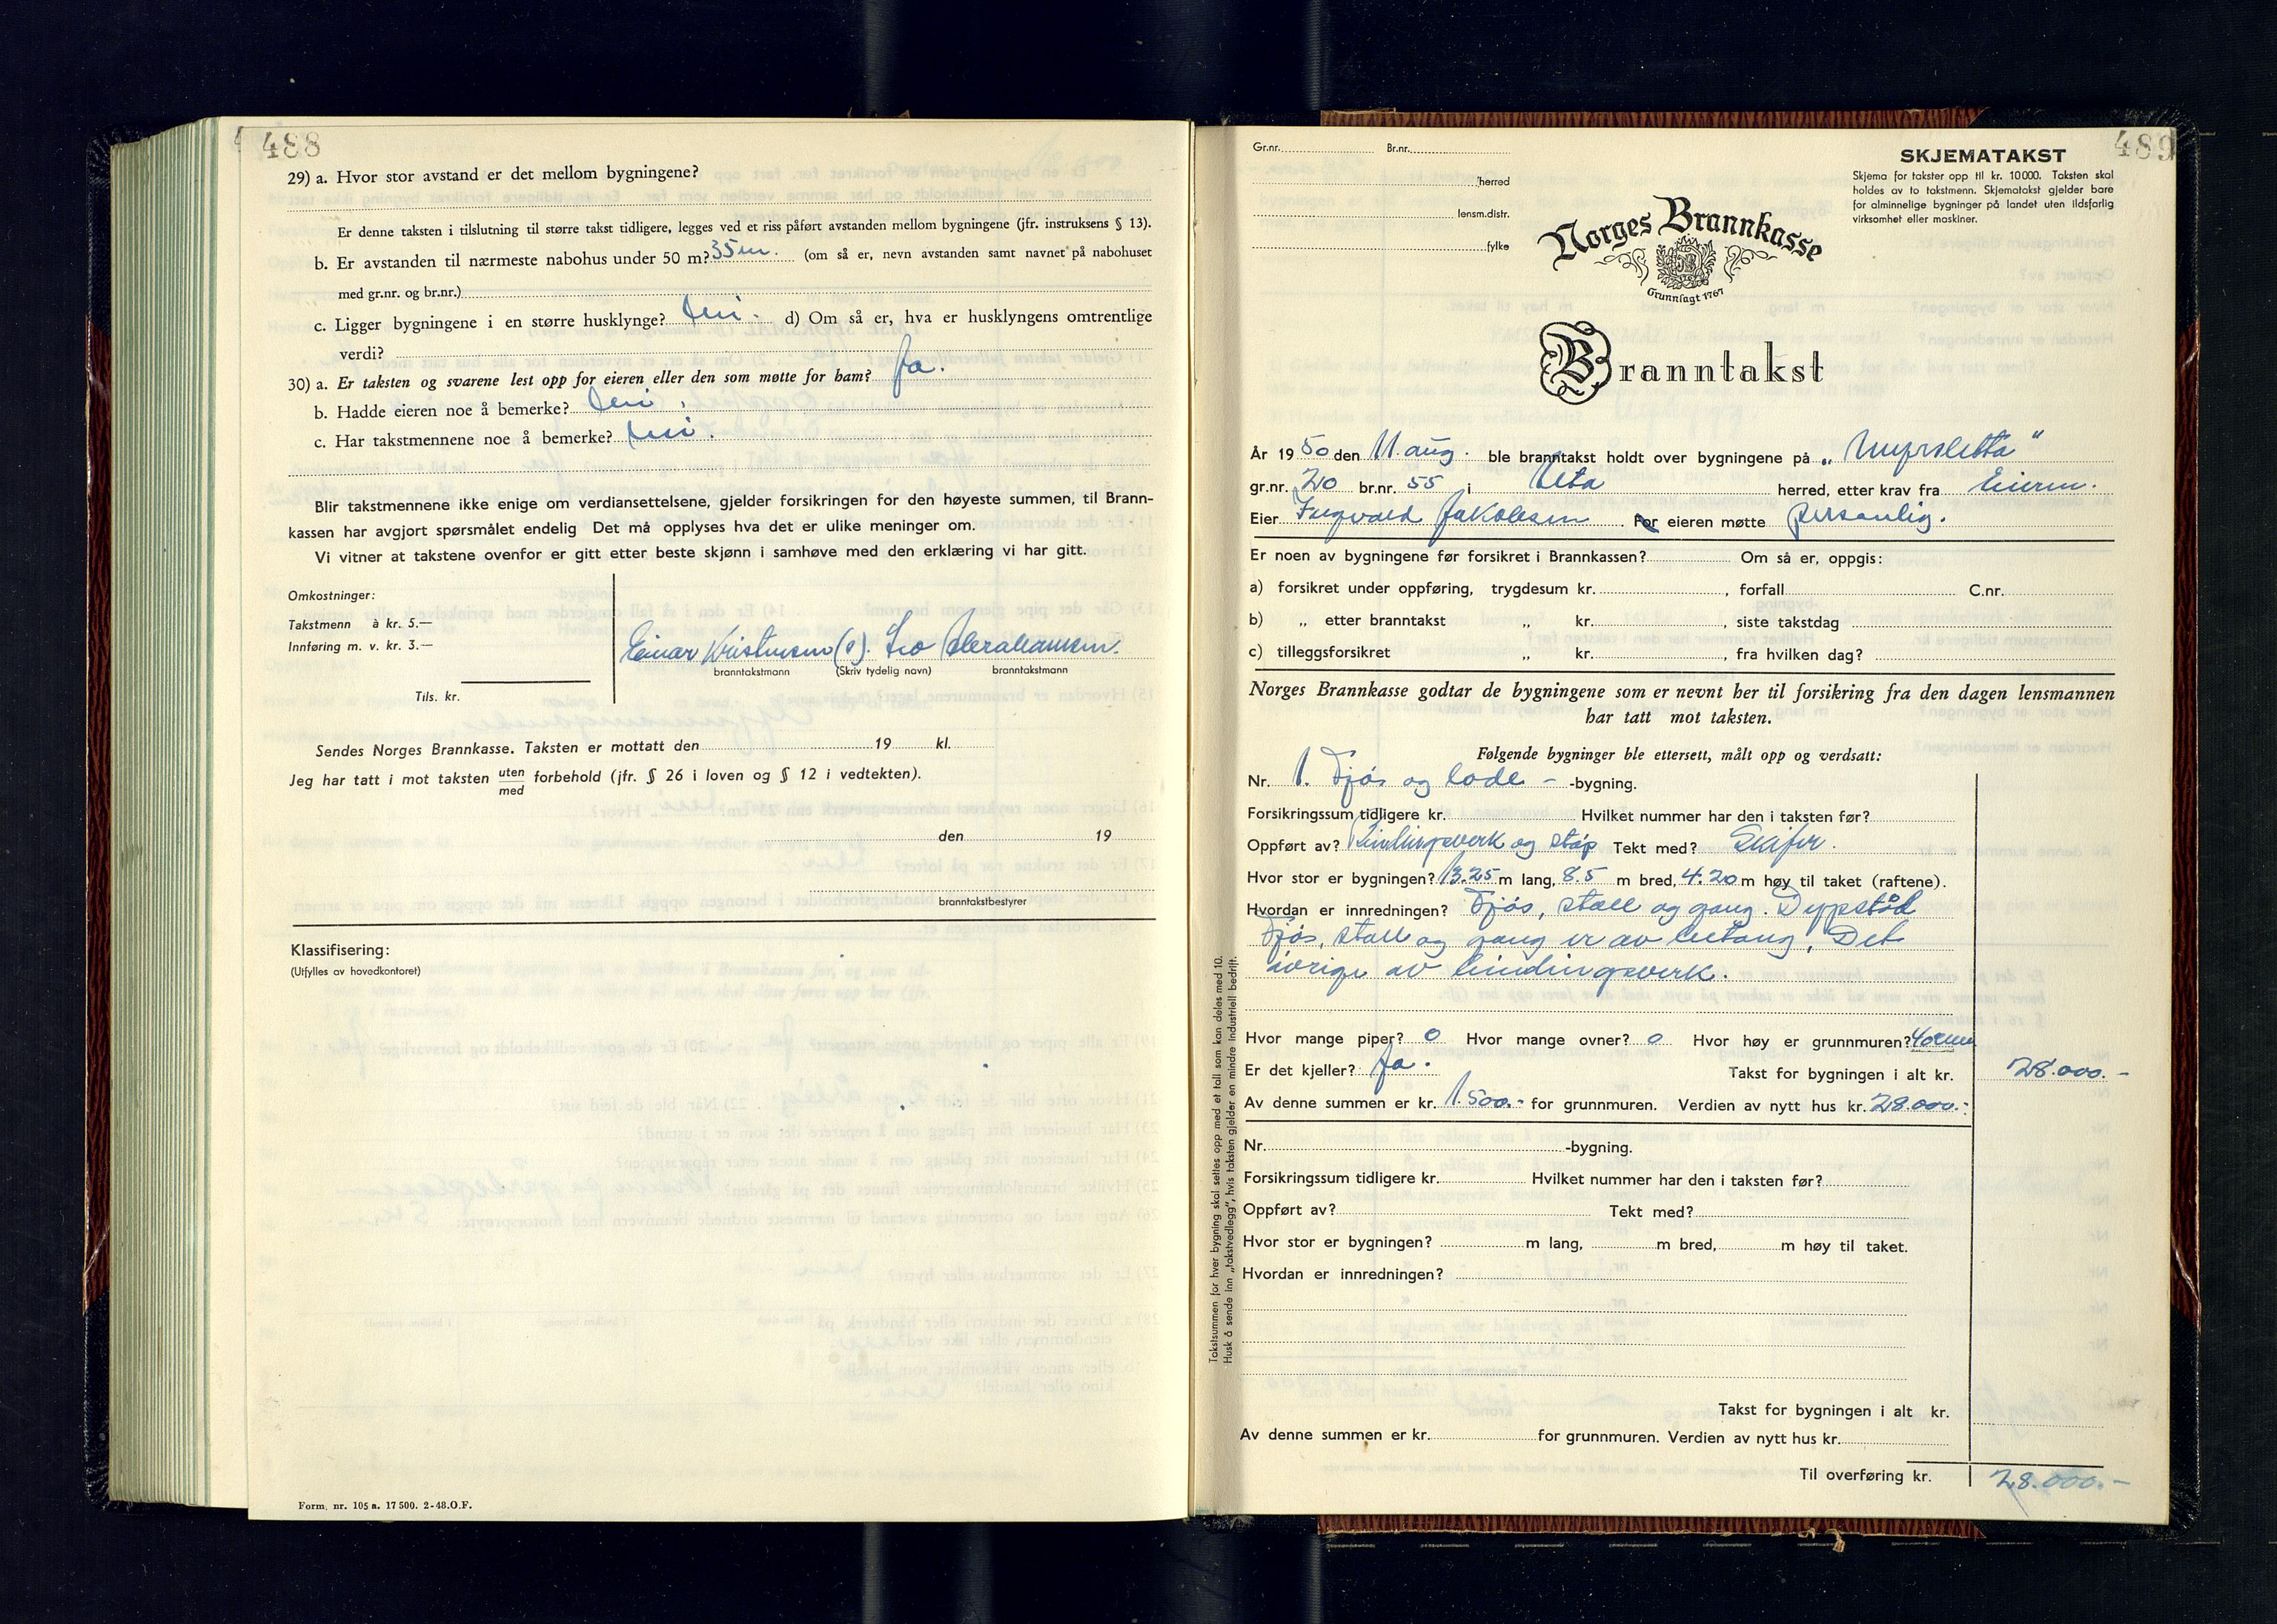 488
29) a. Hvor stor avstand er det mellom bygningene?
Er denne taksten i tilslutning til større takst tidligere, legges ved et riss påført avstanden mellom bygningene (jfr. instruksens § 13).
b. Er avstanden til nærmeste nabohus under 50 m? 35 m. (om så er, nevn avstanden samt navnet på nabohuset
med gr.nr. og br.nr.)
c. Ligger bygningene i en større husklynge? Nei. d) Om så er, hva er husklyngens omtrentlige
verdi?
30) a. Er taksten og svarene lest opp for eieren eller den som møtte for ham? Ja.
b. Hadde eieren noe å bemerke? Nei.
c. Har takstmennene noe å bemerke? Nei.
Blir takstmennene ikke enige om verdiansettelsene, gjelder forsikringen for den høyeste summen, til Brann-
kassen har avgjort spørsmålet endelig Det må opplyses hva det er ulike meninger om.
Vi vitner at takstene ovenfor er gitt etter beste skjønn i samhøve med den erklæring vi har gitt.
Omkostninger:
Takstmenn à kr. 5.—
Innføring m. v. kr. 3.—
Tils. kr.
Einar Kristensen (s). Leo Abrahamsen.
branntakstmann (Skriv tydelig navn) branntakstmann
Sendes Norges Brannkasse. Taksten er mottatt den 19 kl.
Jeg har tatt i mot taksten uten forbehold (jfr. § 26 i loven og § 12 i vedtekten).
med
den 19
branntakstbestyrer
Klassifisering:
(Utfylles av hovedkontoret)
Form. nr. 105 a. 17 500. 2-48. O.F.
489
Gr.nr. Br.nr.
herred
lensm.distr.
fylke
SKJEMATAKST
Skjema for takster opp til kr. 10 000. Taksten skal
holdes av to takstmenn. Skjematakst gjelder bare
for alminnelige bygninger på landet uten ildsfarlig
virksomhet eller maskiner.
Norges Brannkasse
Grunnlagt 1767
Branntakst
År 1950 den 11. aug. ble branntakst holdt over bygningene på „Myrsletta"
gr.nr. 20 br.nr. 55 i herred, etter krav fra Eieren.
Eier Ingvald Jakobsen For eieren møtte personlig.
Er noen av bygningene før forsikret i Brannkassen? Om så er, oppgis:
a) forsikret under oppføring, trygdesum kr. , forfall C.nr.
b) „ etter branntakst „ kr. , siste takstdag
c) tilleggsforsikret „ kr. , fra hvilken dag?
Norges Brannkasse godtar de bygningene som er nevnt her til forsikring fra den dagen lensmannen
har tatt mot taksten.
Følgende bygninger ble ettersett, målt opp og verdsatt:
Nr. 1. Fjøs og låve - -bygning.
Forsikringssum tidligere kr. Hvilket nummer har den i taksten før?
Oppført av? Bindingsverk og støp Tekt med? Skifer.
Hvor stor er bygningen? 13.25 m lang, 8.5 m bred, 4.20 m høy til taket (raftene).
Hvordan er innredningen? Fjøs, stall og gang.
Fjøs, stall og gang er av betong. Det
øvrige av bindingsverk.
Hvor mange piper? 0 Hvor mange ovner? 0 Hvor høy er grunnmuren? 40 cm
Er det kjeller? Ja. Takst for bygningen i alt kr. 28.000.-
Av denne summen er kr. 1.500.- for grunnmuren. Verdien av nytt hus kr. 28.000.-
Nr. -bygning.
Forsikringssum tidligere kr. Hvilket nummer har den i taksten før?
Oppført av? Tekt med?
Hvor stor er bygningen? m lang, m bred, m høy til taket.
Hvordan er innredningen?
Takst for bygningen i alt kr.
Av denne summen er kr. for grunnmuren. Verdien av nytt hus kr.
Til overføring kr. 28.000.-
Takstsummen for hver bygning skal settes opp med et tall som kan deles med 10.
Husk å sende inn „takstvedlegg", hvis taksten gjelder en mindre industriell bedrift.